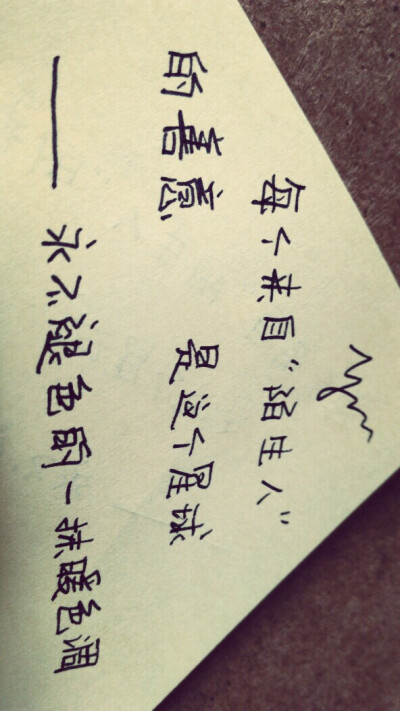 每个来自“陌生人”
的善意 是这个星球
——永不褪色的一抹暖色调